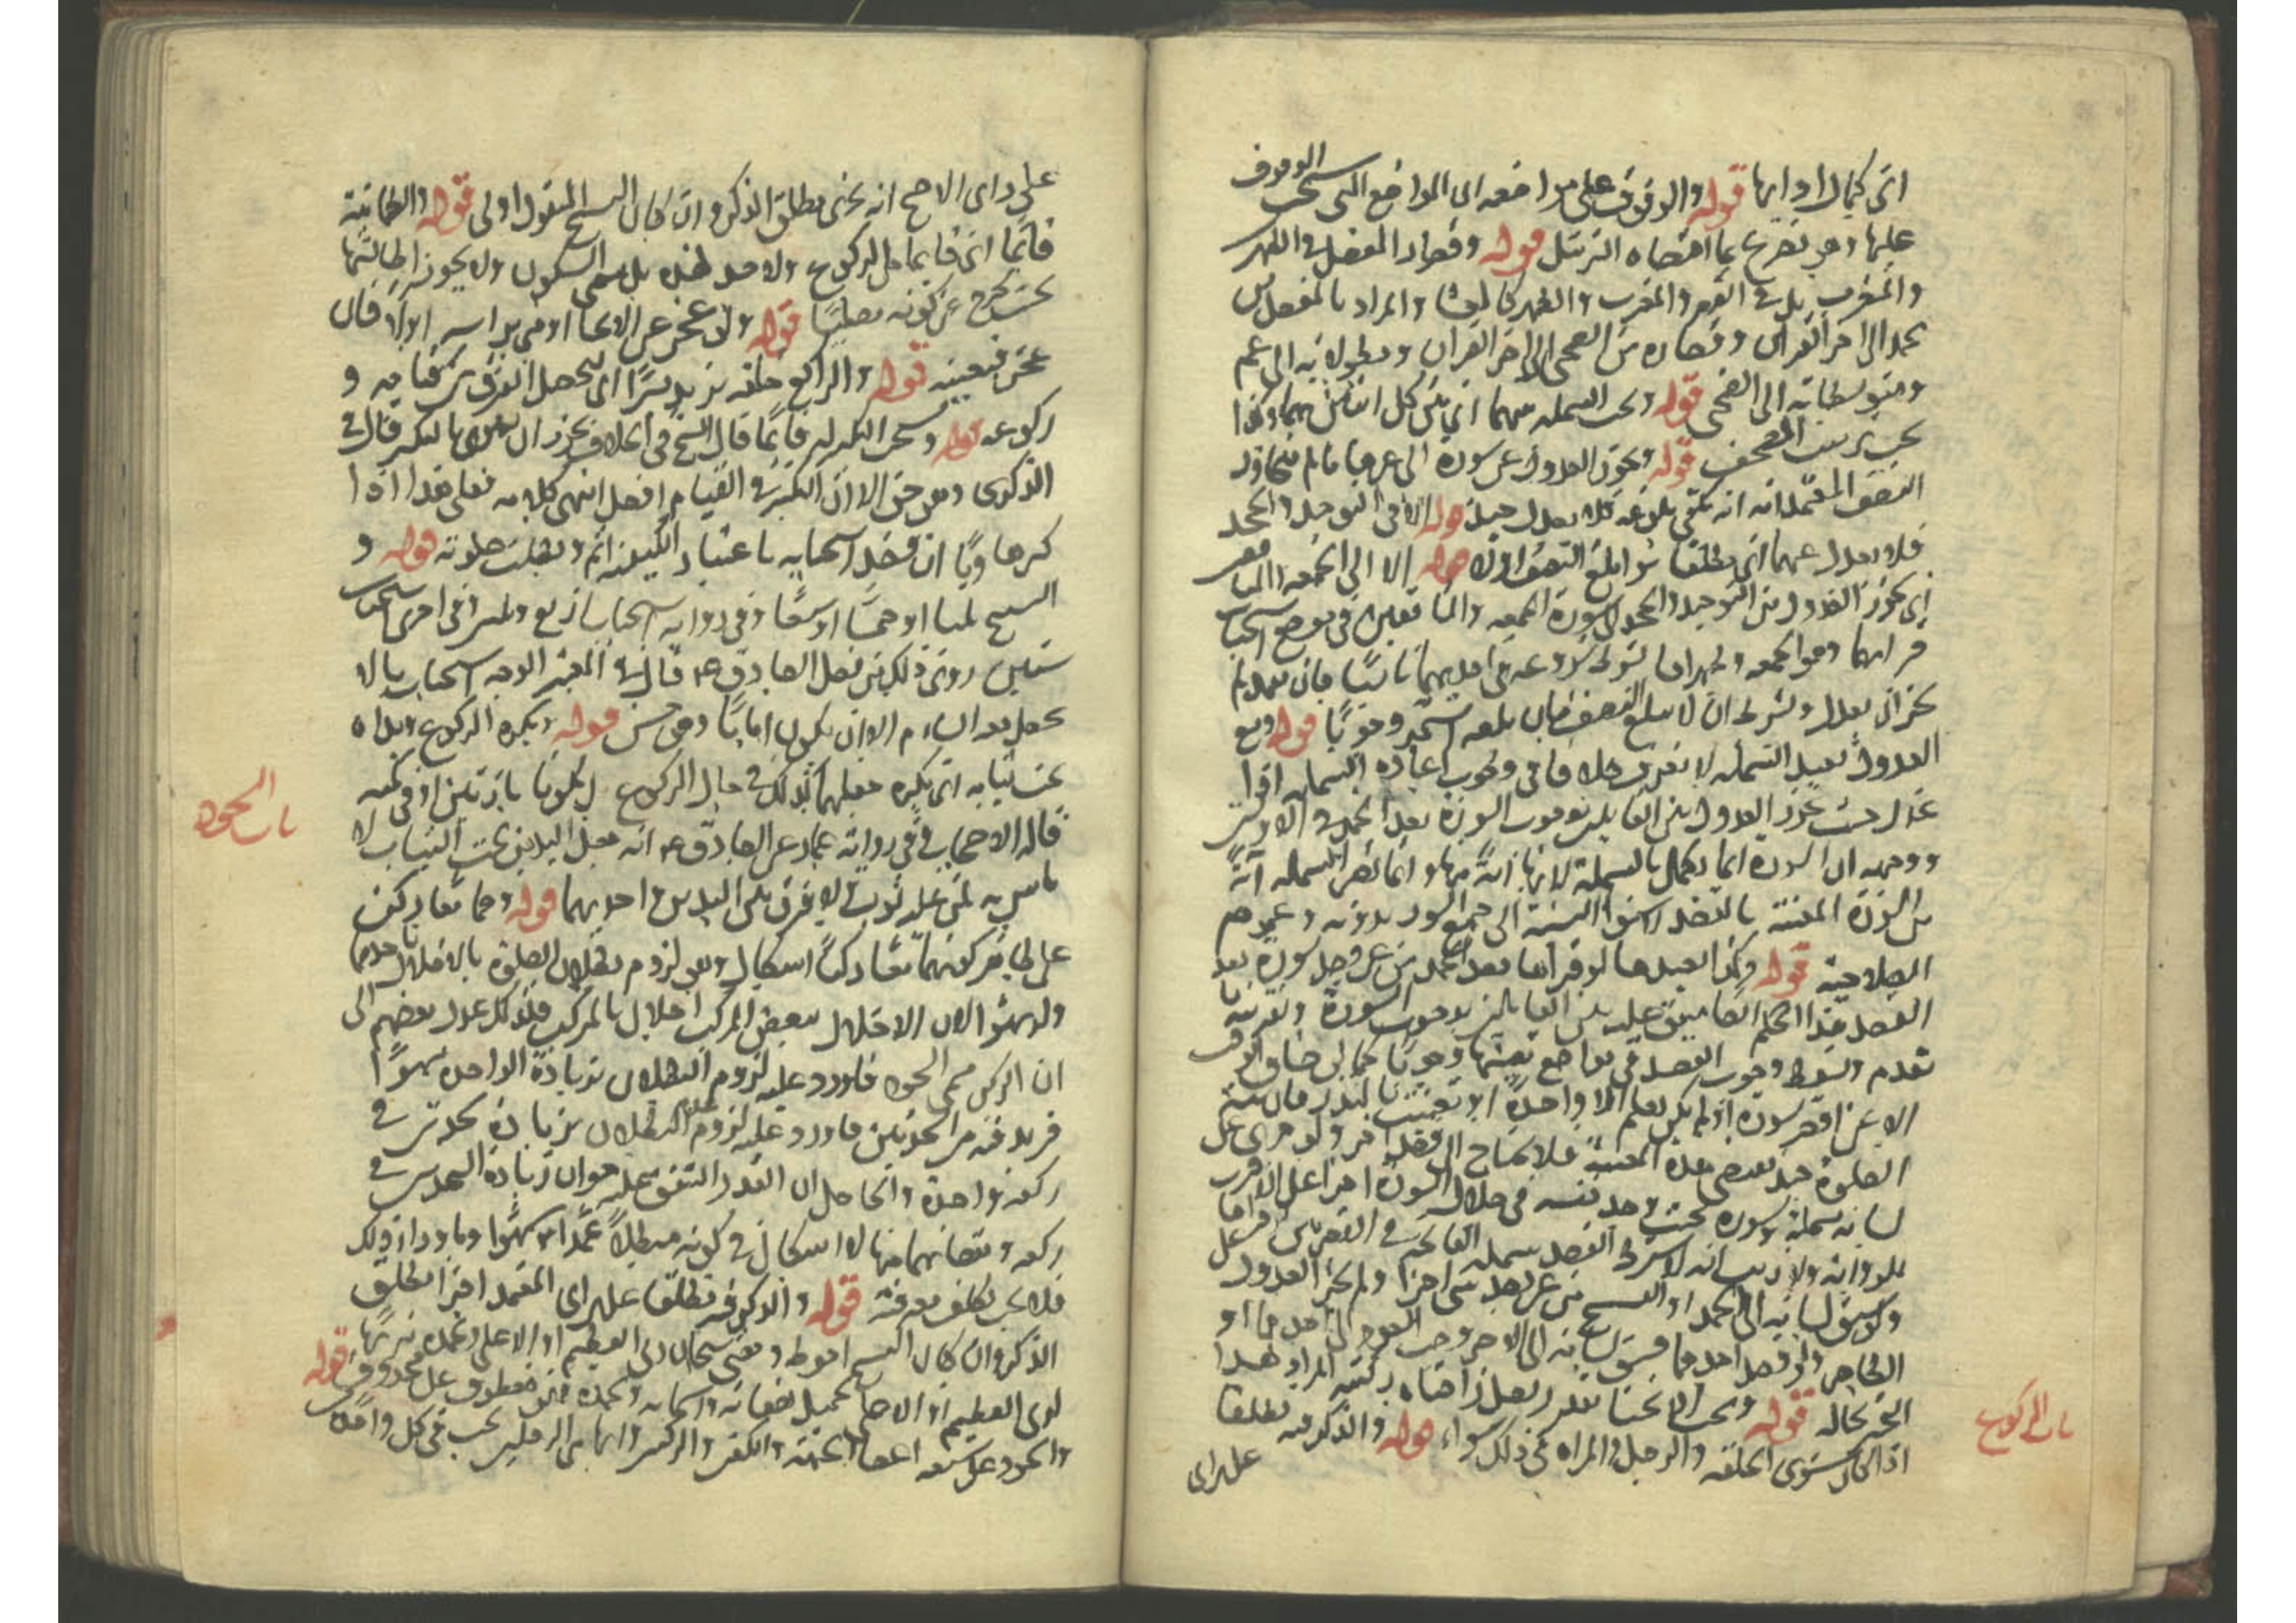 اى كمال ادايها قوله والوقوف على مواضعه اى المواضع التى يستحب الوقوف
عليها وهو تصريح بما اقتضاه الترتيل قوله وقصار المفصل فى الظهر
والمغرب بل فى العصر والمغرب والظهر كالعشا والمراد بالمفصل من
محمد الى اخر القران وقصاره من الضحى الى اخر القران ومطولاته الى عم
ومتوسطاته الى الضحى قوله وتجب البسملة بينهما اى بين كل اثنتين منهما وكذا
يجب ترتيب المصحف قوله ويجوز العدول عن سورة الى غيرها ما لم يتجاوز
النصف المعتمد انه متى بلغه فلا يعدل حينئذ قوله الا فى التوحيد والجحد
فلا يعدل عنهما اى مطلقا سوا بلغ النصف اولا قوله الا الى الجمعة والمنافقين
اى يجوز العدول من التوحيد والجحد الى سورة الجمعة والمنافقين فى موضع استحباب
قراتهما وهو الجمعة وظهرها بشرط شروعه فى احديهما ناسيا فان تعمد لم
يجز ان يعدل ويشرط ان لا يبلغ النصف فان بلغه استمر وجوبا قوله ومع
العدول يعيد البسملة لا نعرف خلافا فى وجوب اعادة البسملة اذا
عدل حيث يجوز العدول من القايلين بوجوب السورة بعد الحمد فى الاوليين
ووجهه ان السورة انما تكمل بالبسملة لانها اية منها وانما تصير البسملة اية
من السورة المعينة بالقصد لاستوا النسبة الى جميع السور بدونه وعموم
الصلاحية قوله وكذا يعيدها لو قرأها بعد الحمد من غير قصد سورة بعد
القصد هذا الحكم ايضا متفق عليه بين القايلين بوجوب السورة وتقريبه ما
تقدم ويسقط وجوب القصد فى مواضع تعينها وجوبا كما لو ضاق الوقت
الا عن اقصر سورة او لم يكن يعلم الا واحدة او تعينت بالنذر فان نية
الصلوة حينئذ تقتضى هذه المعينة فلا يحتاج الى قصد اخر ولو جرى على
لسانه بسملة وسورة بحيث وجد نفسه فى خلال السورة اجزا على الاقرب
للرواية ولا ريب انه لا يشرط القصد ببسملة الفاتحة
ولو سبق لسانه الى الحمد او التسبيح من غير قصد شى اجزا ولم يجز العدول
الى الاخر ولو قصد احدهما فسبق لسانه الى الاخر وجب العود الى احدهما
انحى بحاله قوله ويجب الانحنا بقدر يصل راحتاه ركبتيه المراد هذا
اذا كان مستوى الخلقة والرجل والمراة فى ذلك سواء قوله والذكر فيه مطلقا
على راى
باب الركوع
على راى الاصح انه يجزى مطلق الذكر وان كان التسبيح المنقول اولى قوله والطمانينة
قائما اى قايما من الركوع ولا حد لهذه بل مسمى السكون ولا يجوز اطالتها
بحيث يخرج عن كونه مصليا قوله ولو عجز عن الانحنا اومى براسه اولا فان
عجز فبعينيه قوله والراكع خلقة يزيد يسيرا اى ليحصل الفرق بين قيامه و
ركوعه قوله ويستحب التكبير له قائما قال الشيخ فى الخلاف يجوز ان يهوى بالتكبير قال فى
الذكرى وهو حق الا ان التكبير فى القيام افضل انتهى كلامه فعلى هذا اذا
كبر هاويا ان قصد استحبابه باعتبار الكيفية اثم وبطلت صلوته قوله و
التسبيح ثلثا او خمسا او سبعا وفى رواية استحباب اربع وثلثين وفى اخرى استحباب
ستين روى ذلك من فعل الصادق ع قال فى المعتبر الوجه استحباب ما لا
يحصل معه السام الا ان يكون اماما وهو حسن قوله ويكره الركوع ويداه
تحت ثيابه اى يكره جعلهما كذلك فى حال الركوع بل يكونا بارزتين او فى كمه
قاله الاصحاب وفى رواية عمار عن الصادق ع انه جعل اليدين تحت الثياب لا
باس به لمن عليه ثوب ولا فرق بين اليدين واحديهما قوله وهما معا ركن
على ظاهر كونهما معا ركنا اشكال وهو لزوم بطلان الصلوة بالاخلال باحديهما
ولو سهوا لان الاخلال ببعض المركب اخلال بالمركب فلذلك عدل بعضهم الى
ان الركن مسمى السجود فاورد عليه لزوم البطلان بزيادة الواحدة سهوا
فريد فيه من السجدتين فاورد عليه لزوم البطلان بزيادة سجدتين فى
ركعة واحدة والحاصل ان القدر المتفق عليه هو ان زيادة السجدتين فى
ركعة ونقصانهما منها لا اشكال فى كونه مبطلا عمدا وسهوا وما ورا ذلك
فلا يجب تكلف معرفته قوله والذكر فيه مطلقا على راى المعتمد اجزا مطلق
الذكر وان كان التسبيح احوط ومعنى سبحان ربى العظيم او الاعلى وبحمده تنزيها
لربى العظيم او الاعلى وبحميد صفاته واسمائه وبحمده فهو معطوف على محذوف قوله
والسجود على سبعة اعضا الجبهة والكفين والركبتين وابهامى الرجلين يجب فى كل واحد
باب السجود